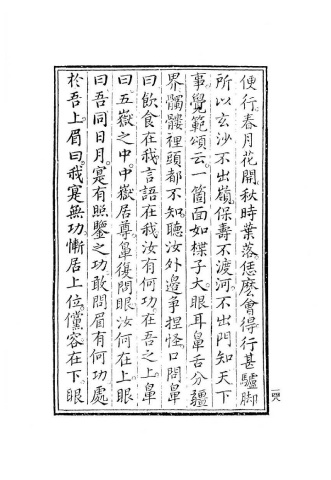 便行。春月花開。秋時葉落。恁麽會得。行甚驢脚
所以玄沙不出嶺。保壽不渡河。不出門知天下
事。覺範頌云。一箇面如楪子大。眼耳鼻舌分疆
界。髑髏裡頭都不知。聽汝外邊爭捏怪。口問鼻
曰。飲食在我。言語在我。汝有何功。在吾之上。鼻
曰。五嶽之中。中嶽居尊。鼻復問眼。汝何在上。眼
曰。吾同日月。寔有照鑒之功。敢問眉有何功。處
於吾上。眉曰。我寔無功。慚居上位。儻容在下。眼